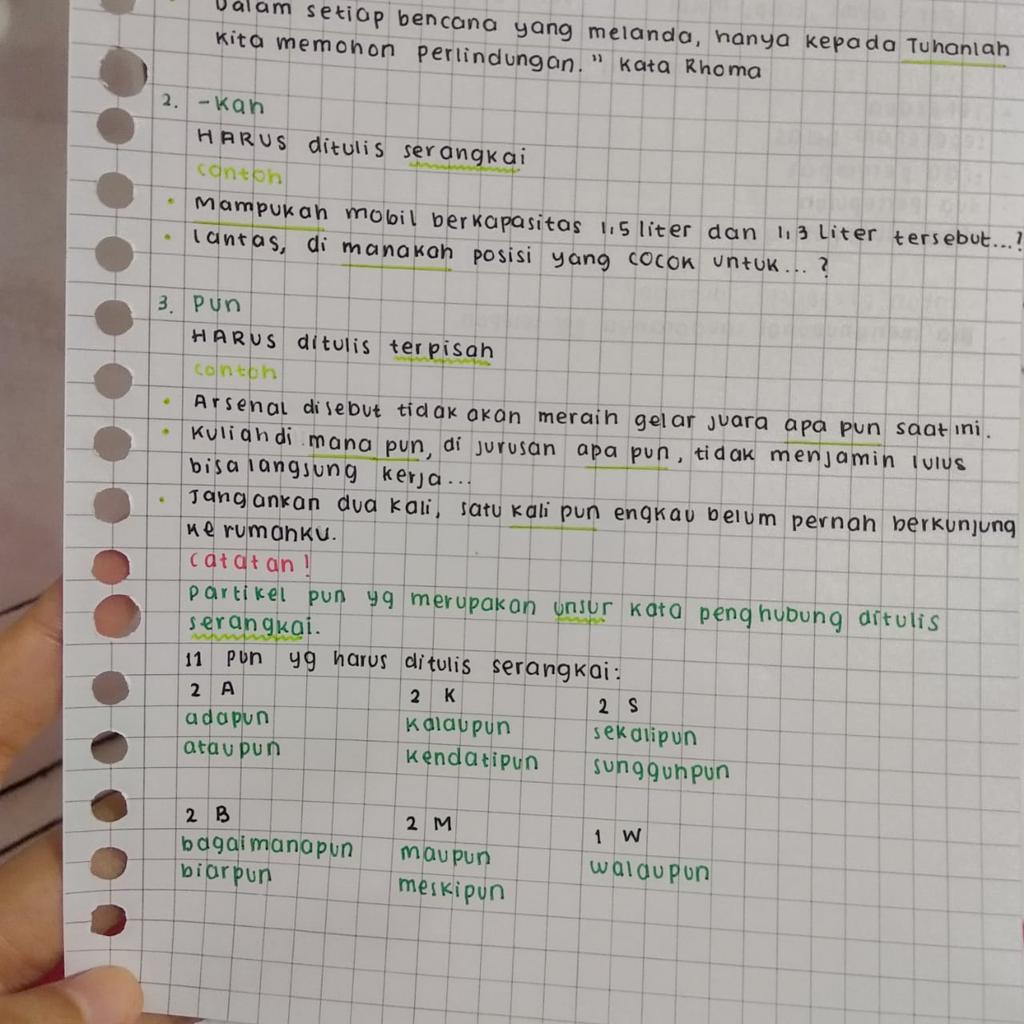 Dalam setiap bencana yang melanda, hanya kepada Tuhanlah
kita memohon perlindungan." Kata Rhoma
2. -kah
HARUS ditulis serangkai
contoh
• Mampukah mobil berkapasitas 1,5 liter dan 1,3 Liter tersebut...?
• lantas, di manakah posisi yang cocok untuk... ?
3. pun
HARUS ditulis terpisah
contoh
• Arsenal disebut tidak akan meraih gelar juara apa pun saat ini.
• kuliah di mana pun, di jurusan apa pun, tidak menjamin lulus
bisa langsung kerja...
• Jangankan dua kali, satu kali pun engkau belum pernah berkunjung
ke rumahku.
catatan!
partikel pun yg merupakan unsur kata penghubung ditulis
serangkai.
11 pun yg harus ditulis serangkai:
2 A 2 K 2 S
adapun kalaupun sekalipun
ataupun kendatipun sungguhpun
2 B 2 M 1 W
bagaimanapun maupun walaupun
biarpun meskipun